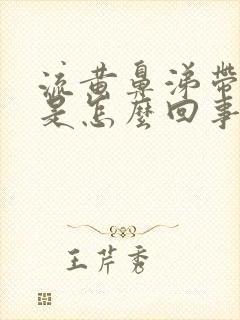 流黄鼻涕带
是怎麼回事
王芹秀